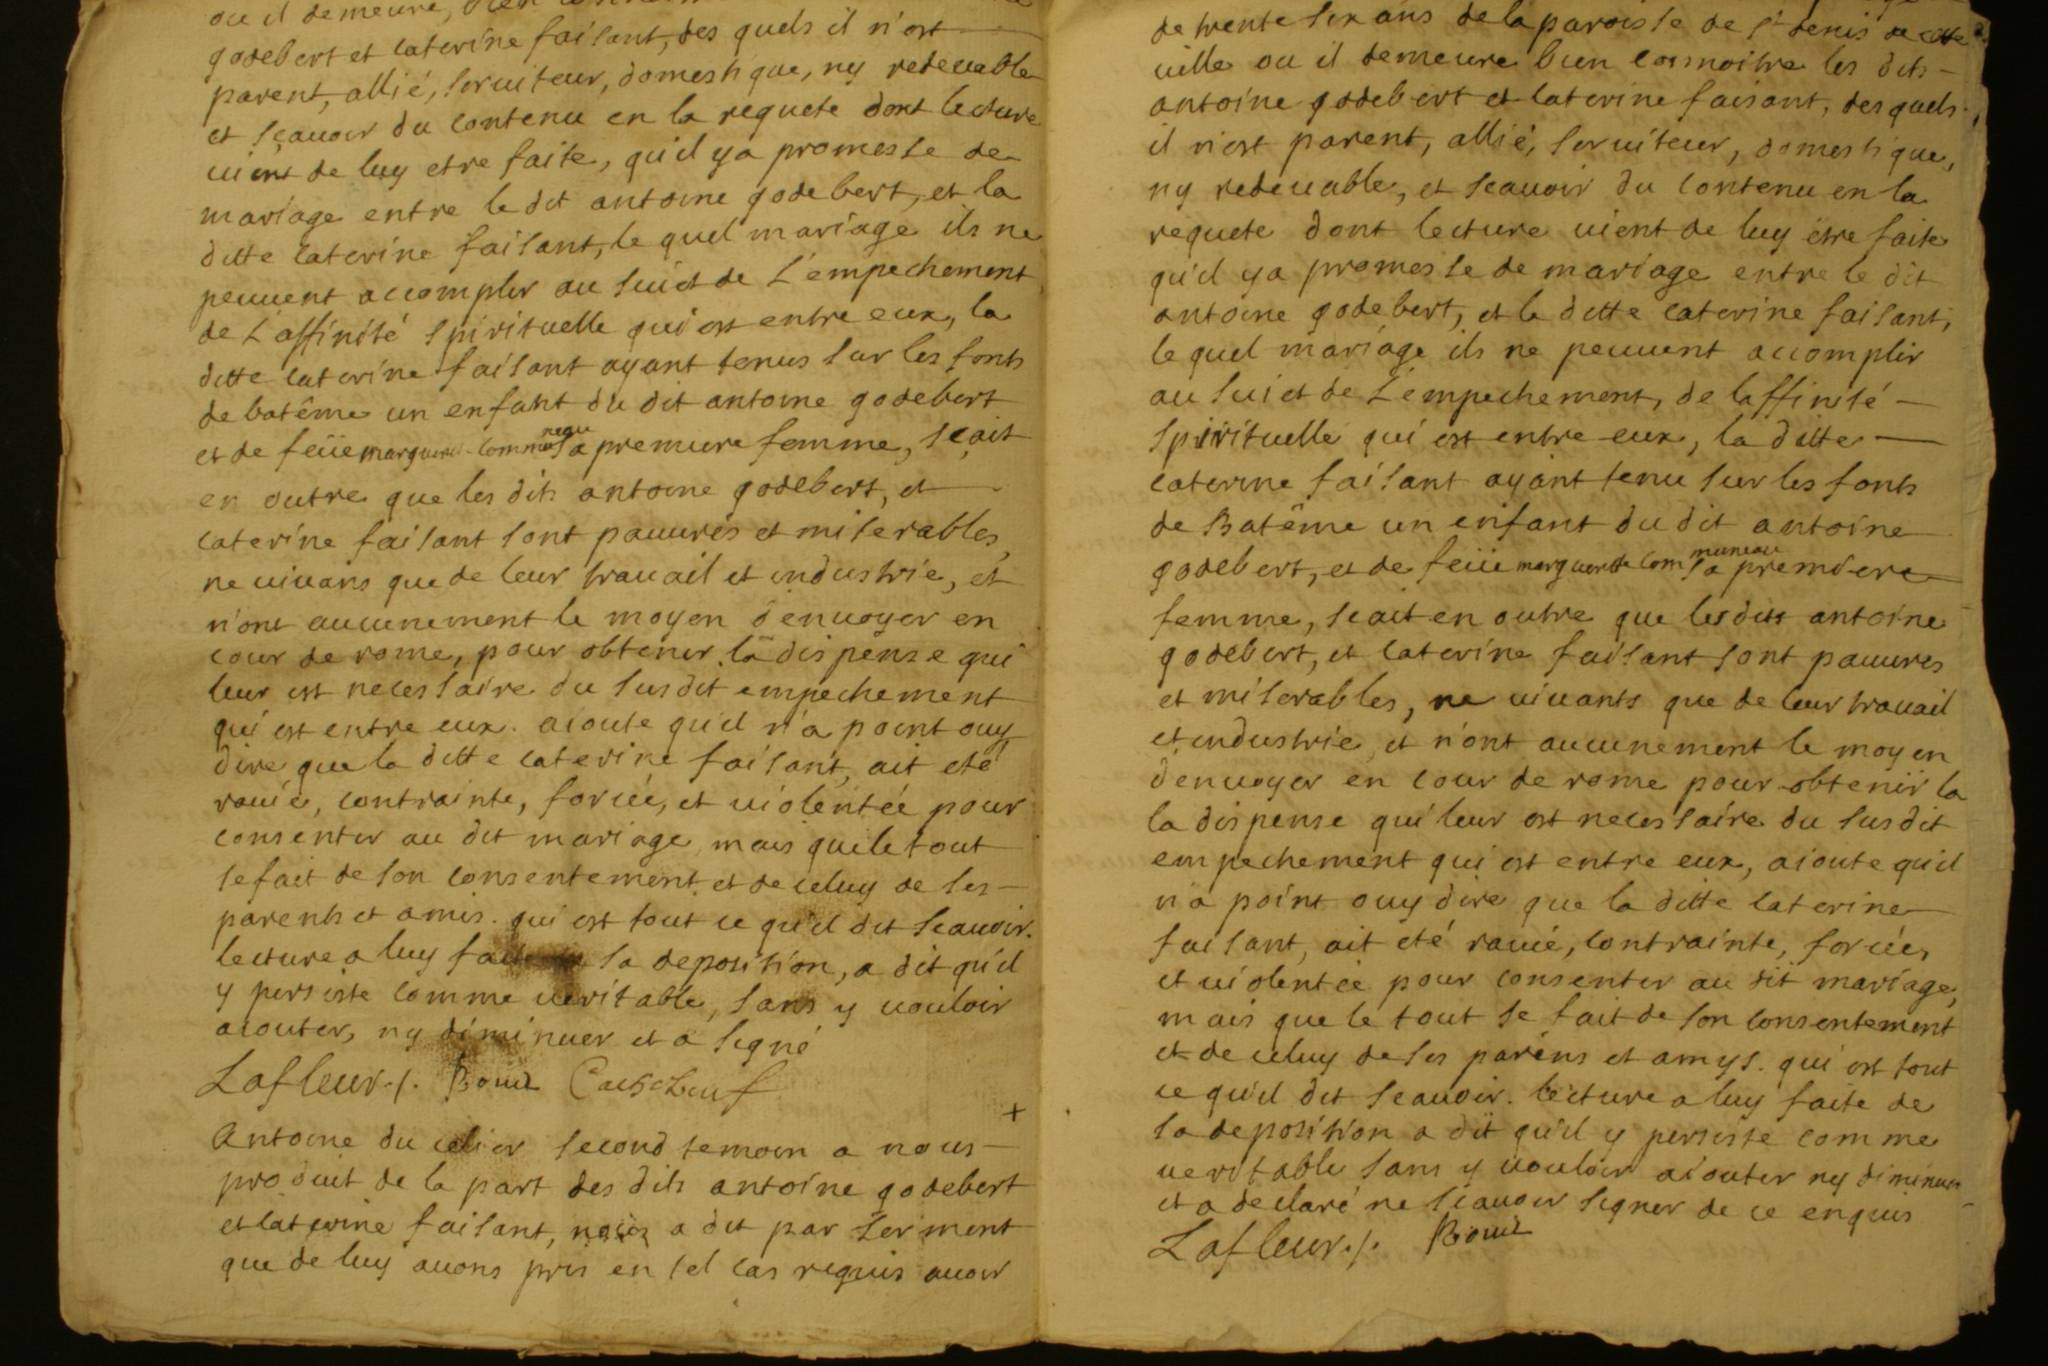 ou il demeure, bien
godebert et caterine faisant, des quels il n'est
parent, allié, seruiteur, domestique, ny redeuable
et sçauoir du contenu en la requete dont lecture
uient de luy etre faite, qu'il y a promesse de
mariage entre le dit antoine godebert, et la
ditte caterine faisant, le quel mariage ils ne
peuuent accomplir au suiet de L'empechement
de L'affinité spirituelle qui est entre eux, la
ditte caterine faisant ayant tenus sur les fonts
de batême un enfant du dit antoine godebert
et de feüe marguerite communeau sa premiere femme, sçait
en outre que les dits antoine godebert, et
caterine faisant sont pauures et miserables,
ne uiuans que de leur trauail et industrie, et
n'ont aucunement le moyen d'enuoyer en
cour de rome, pour obtenir la dispense qui
leur est necessaire du susdit empechement
qui est entre eux. aioute qu'il n'a point ouy
dire que la ditte caterine faisant, ait eté
rauie, contrainte, forcée, et uiolentée pour
consentir au dit mariage, mais que le tout
se fait de son consentement et de celuy de ses
parents et amis. qui est tout ce qu'il dit scauoir.
lecture a luy faite de sa deposition, a dit qu'il
y persiste comme ueritable, sans y uouloir
aiouter, ny diminuer et a signé
Lafleur./.
+
Antoine du celier second temoin a nous
produit de la part des dits antoine godebert
et caterine faisant, nous a dit par serment
que de luy auons pris en tel cas requis auoir
de trente six ans de la paroisse de st denis de cette
uille ou il demeure bien connoitre les dits
antoine godebert et caterine faisant, des quels
il n'est parent, allié, seruiteur, domestique,
ny redeuable, et scauoir du contenu en la
requete dont lecture uient de luy étre faite
qu'il y a promesse de mariage entre le dit
antoine godebert, et la ditte caterine faisant,
le quel mariage ils ne peuuent accomplir
au suiet de L'empechement, de l'affinité
spirituelle qui est entre eux, la ditte
caterine faisant ayant tenu sur les fonts
de Batême un enfant du dit antoine
godebert, et de feüe marguerite communeau sa premiere
femme, scait en outre que les dits antoine
godebert, et caterine faisant sont pauures
et miserables, ne uiuants que de leur trauail
et industrie, et n'ont aucunement le moyen
d'enuoyer en cour de rome pour obtenir la
la dispense qui leur est necessaire du susdit
empechement qui est entre eux, aioute qu'il
n'a point ouy dire que la ditte caterine
faisant, ait eté rauie, contrainte, forcée,
et uiolentée pour consentir au dit mariage,
mais que le tout se fait de son consentement
et de celuy de ses parens et amys. qui est tout
ce qu'il dit scauoir. lecture a luy faite de
sa deposition a dit qu'il y persiste comme
ueritable sans y uouloir aiouter ny diminuer
et a declaré ne scauoir signer de ce enquis
Lafleur./.